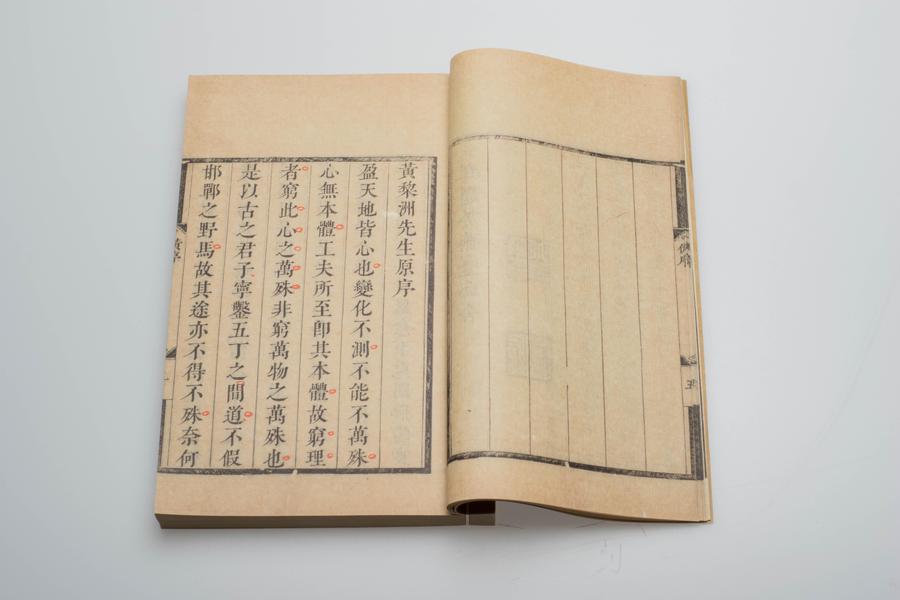 黃黎洲先生原序
盈天地皆心也變化不測不能不萬殊
心無本體工夫所至卽其本體故窮理
者窮此心之萬殊非窮萬物之萬殊也
是以古之君子寧鑿五丁之間道不假
邯鄲之野馬故其途亦不得不殊奈何
黃序